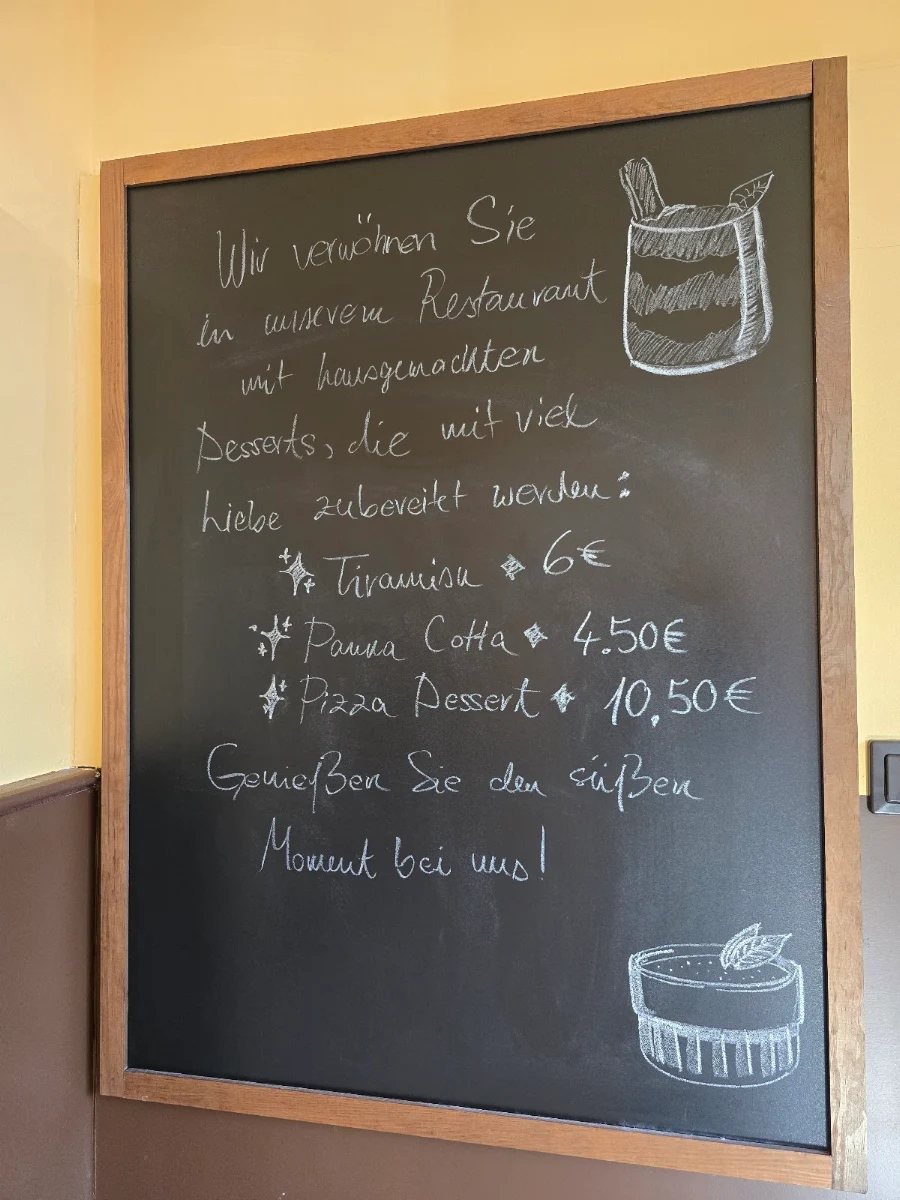 Wir verwöhnen Sie
in unserem Restaurant
mit hausgemachten
Desserts, die mit viel
Liebe zubereitet werden:
Tiramisu 6€
Panna Cotta 4.50€
Pizza Dessert 10,50€
Genießen Sie den süßen
Moment bei uns!